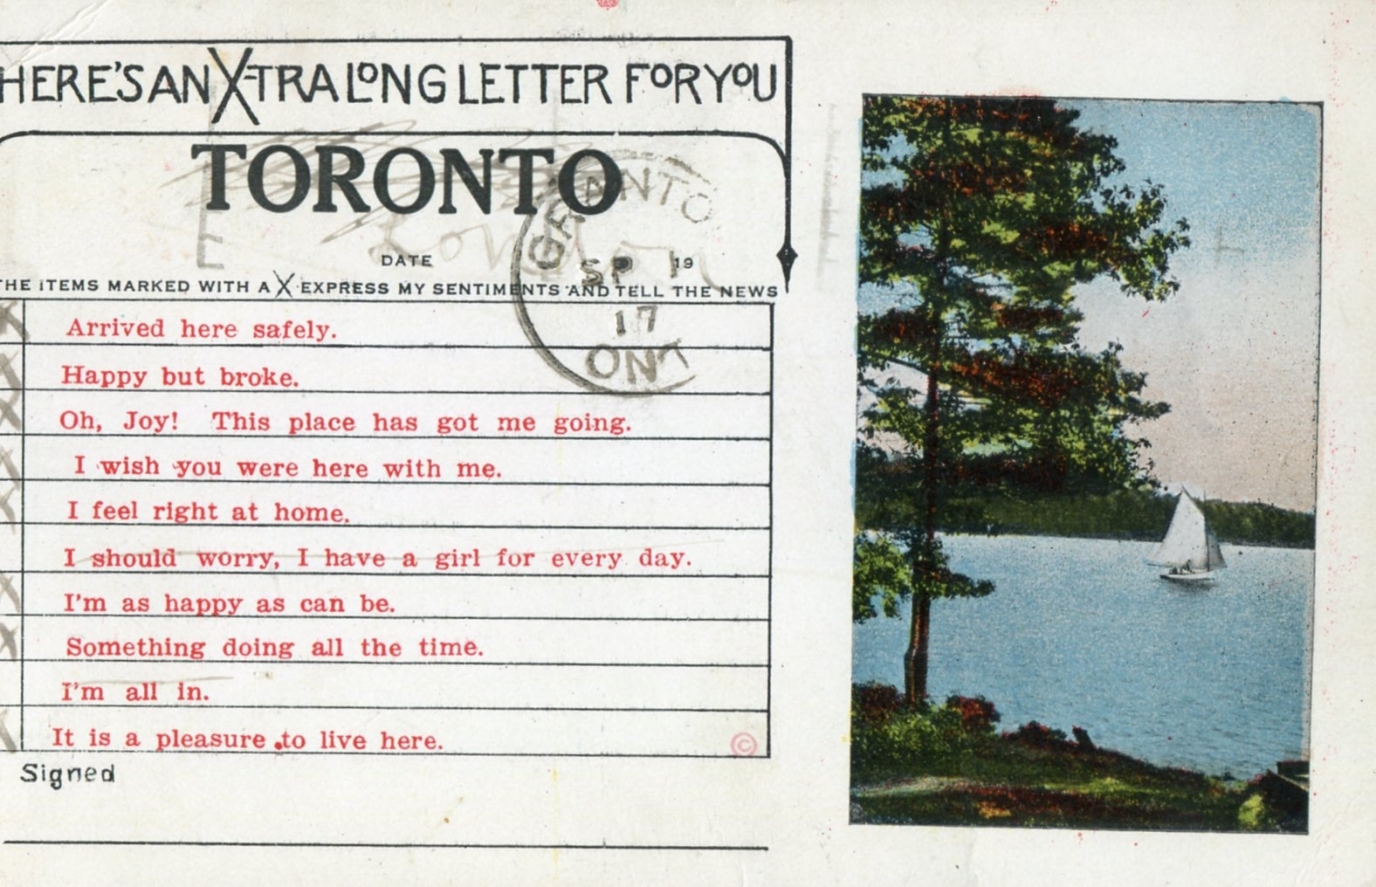 HERE'S AN X-TRA LONG LETTER FOR YOU
TORONTO
London
DATE 19
THE ITEMS MARKED WITH A X EXPRESS MY SENTIMENTS AND TELL THE NEWS
GRANTON
SP
17
ONT
X Arrived here safely.
X Happy but broke.
X Oh, Joy! This place has got me going.
X I wish you were here with me.
X I feel right at home.
I should worry, I have a girl for every day.
X I'm as happy as can be.
X Something doing all the time.
I'm all in.
X It is a pleasure to live here.
©
Signed